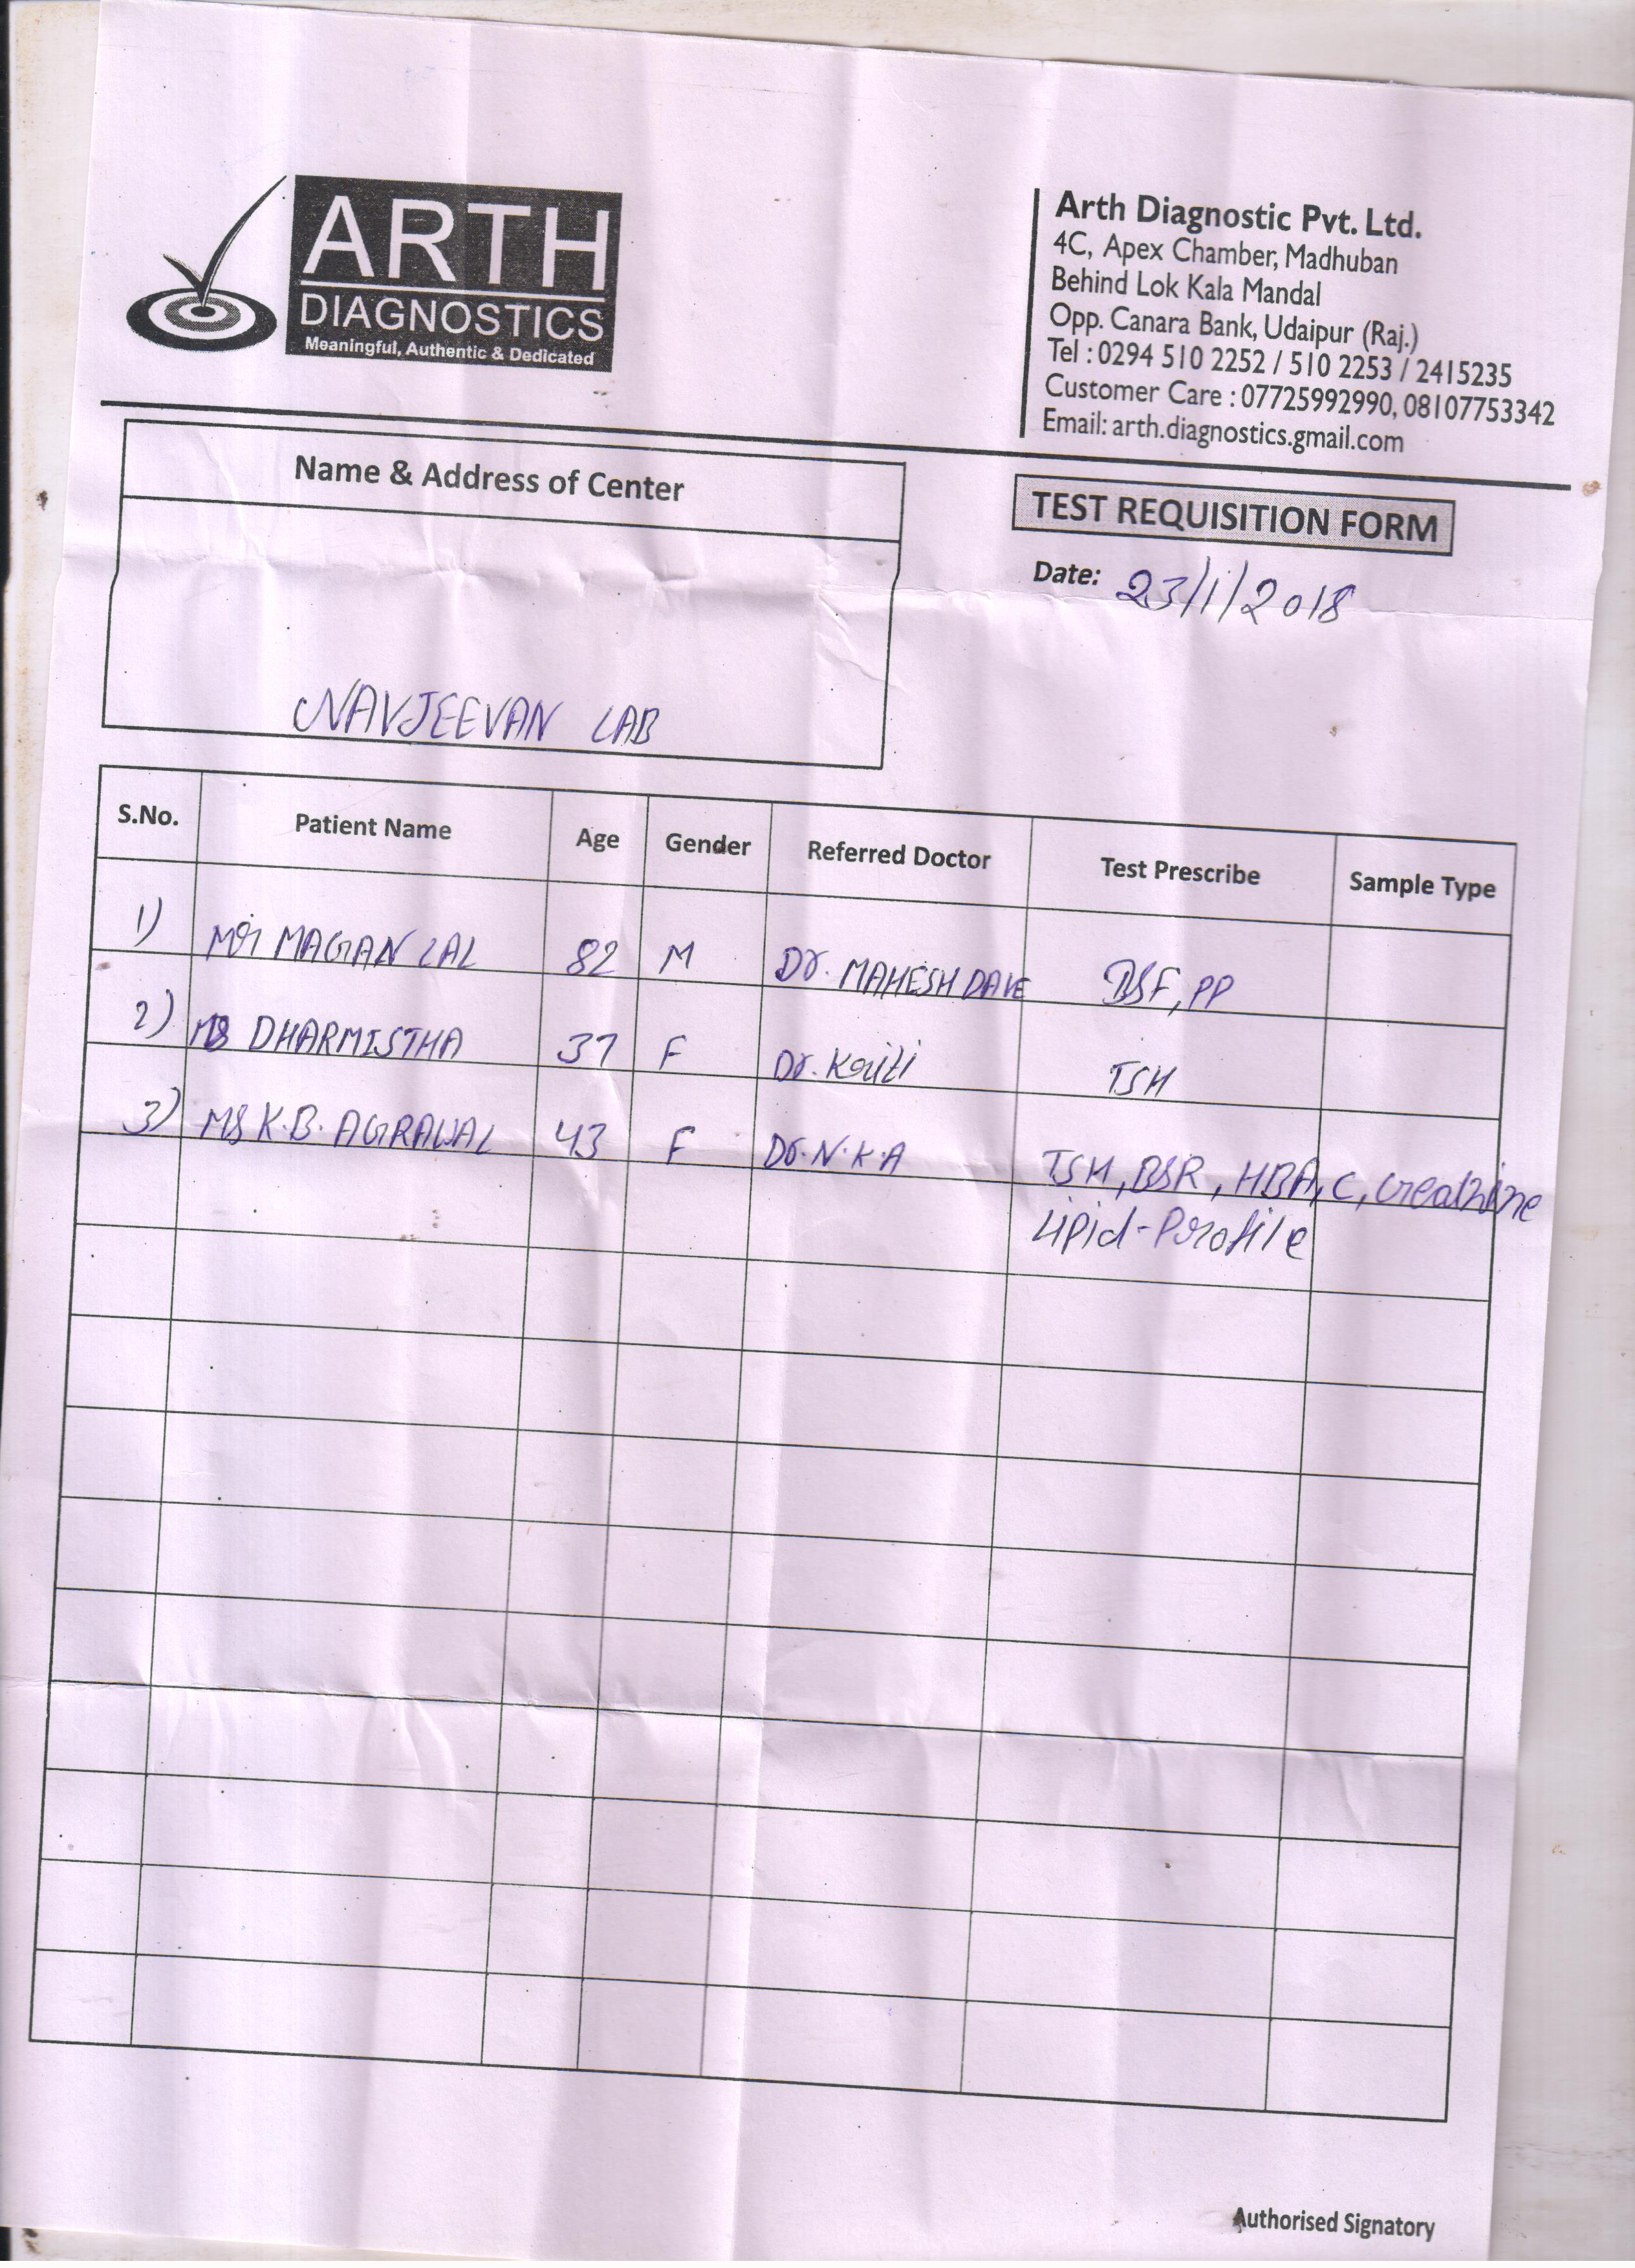 ARTH
DIAGNOSTICS
Meaningful, Authentic & Dedicated
Arth Diagnostic Pvt. Ltd.
4C, Apex Chamber, Madhuban
Behind Lok Kala Mandal
Opp. Canara Bank, Udaipur (Raj.)
Tel : 0294 510 2252 / 510 2253 / 2415235
Customer Care : 07725992990, 08107753342
Email: arth.diagnostics.gmail.com
Name & Address of Center
NAVJEEVAN LAB
TEST REQUISITION FORM
Date: 23/1/2018
S.No. Patient Name Age Gender Referred Doctor Test Prescribe Sample Type
1) Mr MAGAN LAL 82 M Dr. MAHESH DAVE BSF, PP
2) MS DHARMISTHA 37 F Dr. Kriti TSH
3) MS K.B. AGRAWAL 43 F Dr. N.K.A TSH, BSR, HBA,C, Creatnine
Lipid-Profile
Authorised Signatory